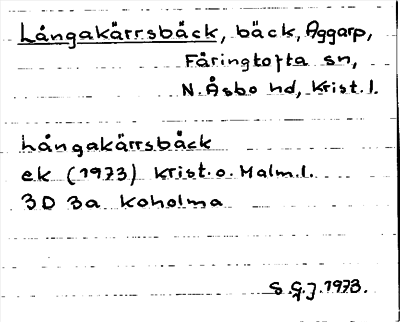 Långakärrsbäck, bäck, Aggarp,
Färingtofta sn,
N. Åsbo hd, Krist. l.
Långakärrsbäck
ek (1973) Krist. o. Malm. l.
3D 3a Koholma
S.G.J. 1973.